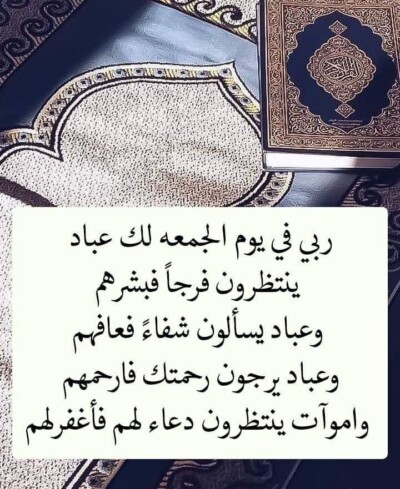 ربي في يوم الجمعه لك عباد
ينتظرون فرجاً فبشرهم
وعباد يسألون شفاءً فعافهم
وعباد يرجون رحمتك فارحمهم
واموآت ينتظرون دعاء لهم فأغفرلهم